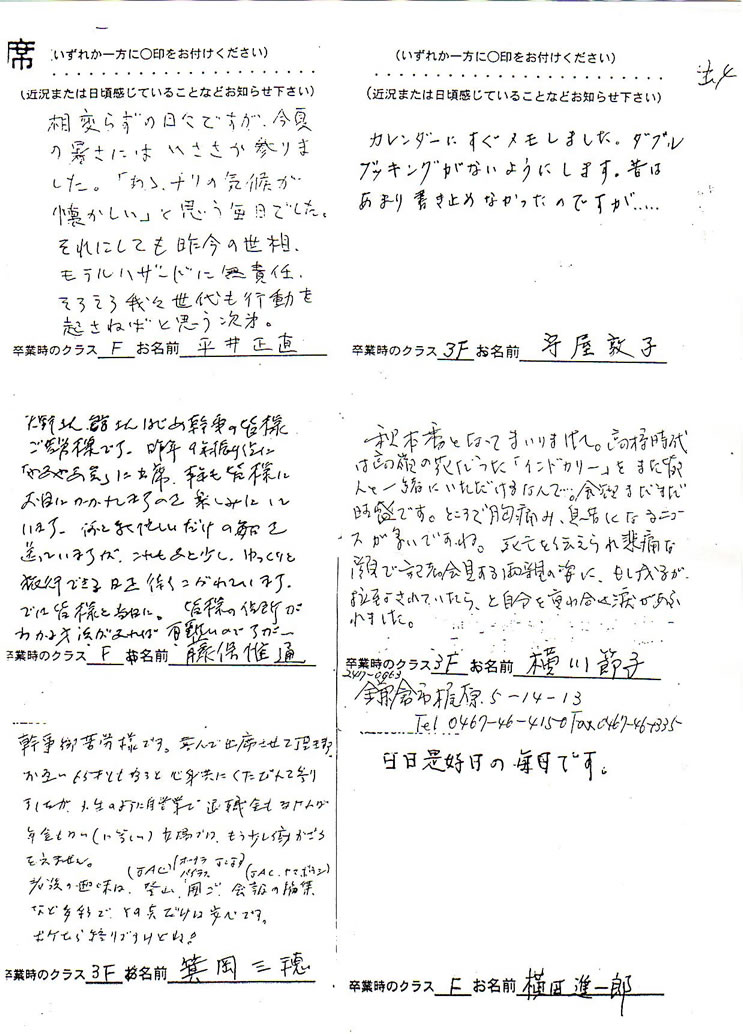 席
(いずれか一方に○印をお付けください)
(近況または日頃感じていることなどお知らせ下さい)
相変らずの日々ですが、今夏
の暑さには いささか参りま
した。「わろ、ナリの気候が
懐かしい」と思う毎日でした。
それにしても昨今の世相、
モラルハザードに無責任、
そろそろ我々世代も行動を
起さねばと思う次才。
卒業時のクラス F お名前 平井正直
(いずれか一方に○印をお付けください)
(近況または日頃感じていることなどお知らせ下さい)
カレンダーにすぐメモしました。ダブル
ブッキングがないようにします。昔は
あまり書き止めなかったのですが.....
卒業時のクラス 3F お名前 守屋敦子
はじめ幹事の皆様
ご苦労様です。昨年
に出席、皆様に
お目にかかれますのを楽しみにして
います。忙しいだけの毎日を
送っていますが、これもあと少し、ゆっくりと
旅行できる日を待ちこがれています。
では皆様と当日に。皆様の住所が
わかる方法があれば有難いのですが―
卒業時のクラス F お名前 藤保惟通
秋本番となってまいりました。高校時代
は の 「インドカリー」をまた皆
んと一緒にいただけるなんて…。食欲まだまだ
旺盛です。ところで胸痛み、息苦になるニュー
スが多いですね。死亡を伝えられ悲痛な
顔で記者会見する両親の姿に、もし我子が
拉致されていたら、と自分を重ね合せ涙があふ
れました。
卒業時のクラス 3F お名前 横川節子
247-0063
鎌倉市梶原5-14-13
Tel 0467-46-4150 Fax 0467-46-
幹事御苦労様です。喜んで出席させて頂きます。
お互い65才ともなると心身共にくたびれて参り
ましたが、小生のように自営業で退職金もなければ
年金もない(に等しい)立場では、もう少し働かざる
をえません。
(JAC)
老後の趣味は、登山、囲ご、会報の編集
など多彩で、その点だけは安心です。
ボケたら終りですけどね!
卒業時のクラス 3F お名前 箕岡三穂
日日是好日の毎日です。
卒業時のクラス F お名前 横田進一郎